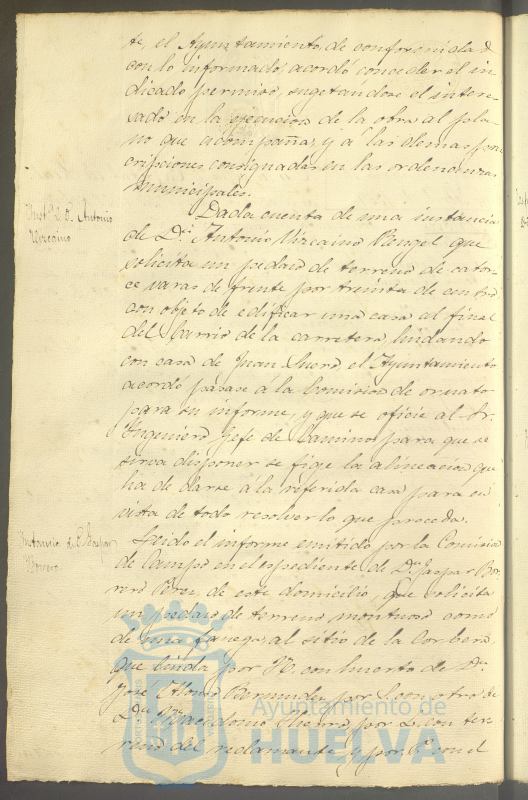 te, el Ayuntamiento, de conformidad
con lo informado, acordó conceder el in-
dicado permiso, sugetandose el intere-
sado en la ejecucion de la obra al pla-
no que acompaña, y á las demas pres-
cripciones consignadas en las ordenanzas
municipales.
Inst.ª de D. Antonio
Vizcaino
Dada cuenta de una instancia
de D.n Antonio Vizcaino Rengel que
solicita un pedazo de terreno de cator-
ce varas de frente por treinta de centro
con objeto de edificar una casa al final
del barrio de la carretera, lindando
con casa de Juan Suero, el Ayuntamiento
acordó pasase á la Comision de ornato
para su informe, y que se oficie al Sr.
Ingeniero Gefe de Caminos para que se
sirva disponer se fige la alineacion que
ha de darse á la referida casa para en
vista de todo resolver lo que proceda.
Instancia de D. Gaspar
Borrero
Leido el informe emitido por la Comision
de Campo en el espediente de D.n Gaspar Bor-
rero Perez, de este domicilio, que solicita
un pedazo de terreno montuoso como
de una fanega, al sitio de la Corbera
que linda por N. con huerto de D.n
José Alonso Bermudez, por S. con otro de
por L. con ter-
reno del reclamante y por P. con el
Ayuntamiento de
HUELVA